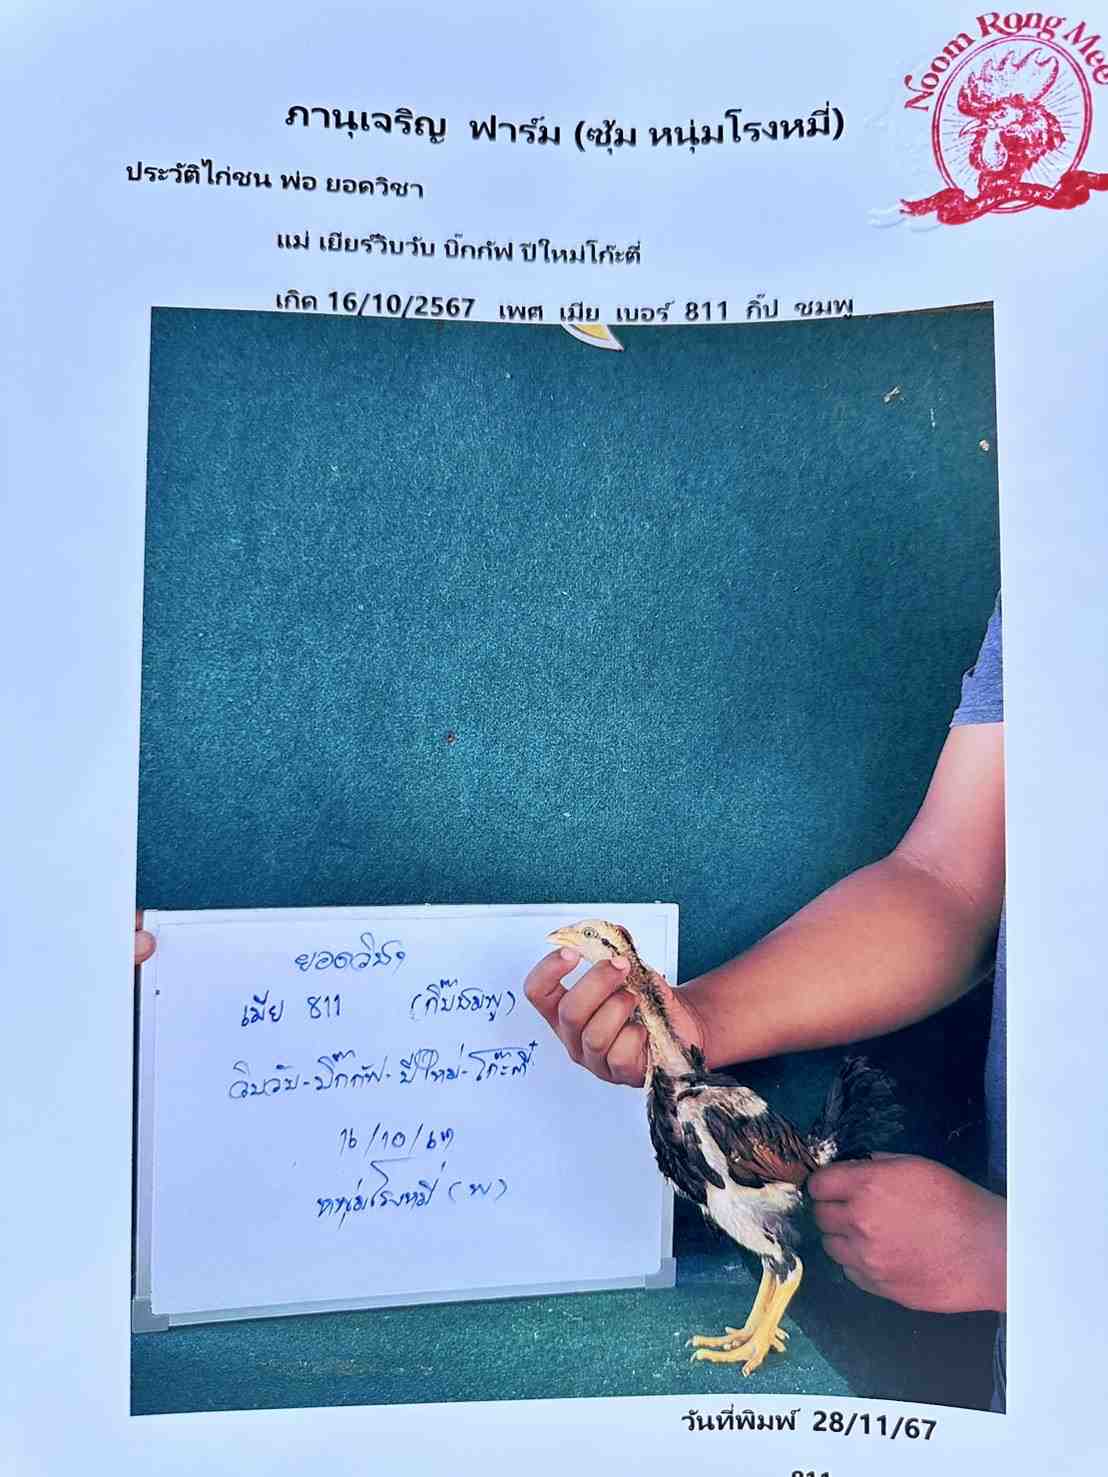 Noom Rong Mee
ภานุเจริญ ฟาร์ม (ซุ้ม หนุ่มโรงหมี่)
ประวัติไก่ชน พ่อ ยอดวิชา
แม่ เยียร์วิบวับ บิ๊กกัฟ ปีใหม่โก๊ะตี่
เกิด 16/10/2567 เพศ เมีย เบอร์ 811 กิ๊ป ชมพู
ยอดวิชา
เมีย 811 (กิ๊บชมพู)
วิบวับ-บิ๊กกัฟ-ปีใหม่-โก๊ะตี๋
16/10/67
หนุ่มโรงหมี่ (พ)
วันที่พิมพ์ 28/11/67
811